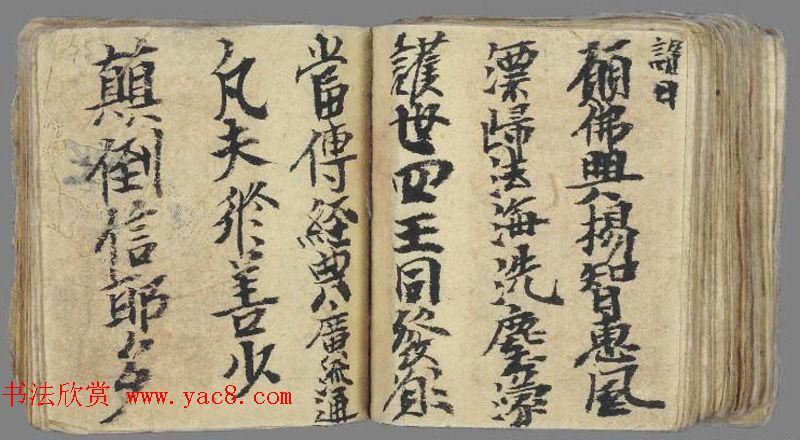 願佛興揚智惠風
漂歸法海洗塵濛
護世四王同發願
當傳経典廣流通
凡夫從善少
顛倒信耶多
书法欣赏 www.yac8.com